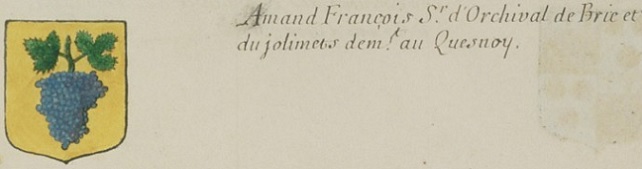 Amand François S.r d'Orchival de Brie et
du jolimets dem.t au Quesnoy.